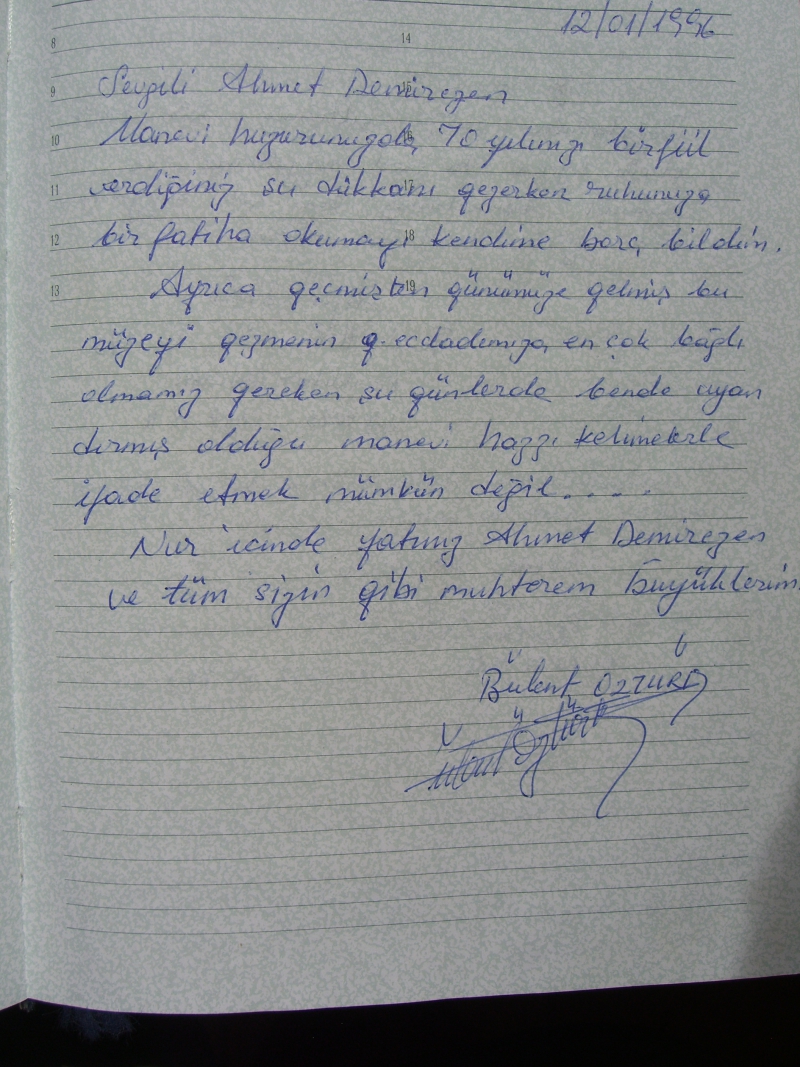 12/01/1996
8 14
9 Sevgili Ahmet Demirezen 15
10 Manevi huzurunuzda, 70 yılınızı birfiil 16
11 verdiğiniz şu dükkanı gezerken ruhunuza 17
12 bir fatiha okumayı kendime borç bildim. 18
13 Ayrıca geçmişten günümüze gelmiş bu 19
müzeyi gezmenin ecdadımıza, en çok bağlı
olmamız gereken şu günlerde bende uyan
dırmış olduğu manevi hazzı kelimelerle
ifade etmek mümkün değil....
Nur içinde yatınız Ahmet Demirezen
ve tüm sizin gibi muhterem Büyüklerim.
Bülent ÖZTÜRK